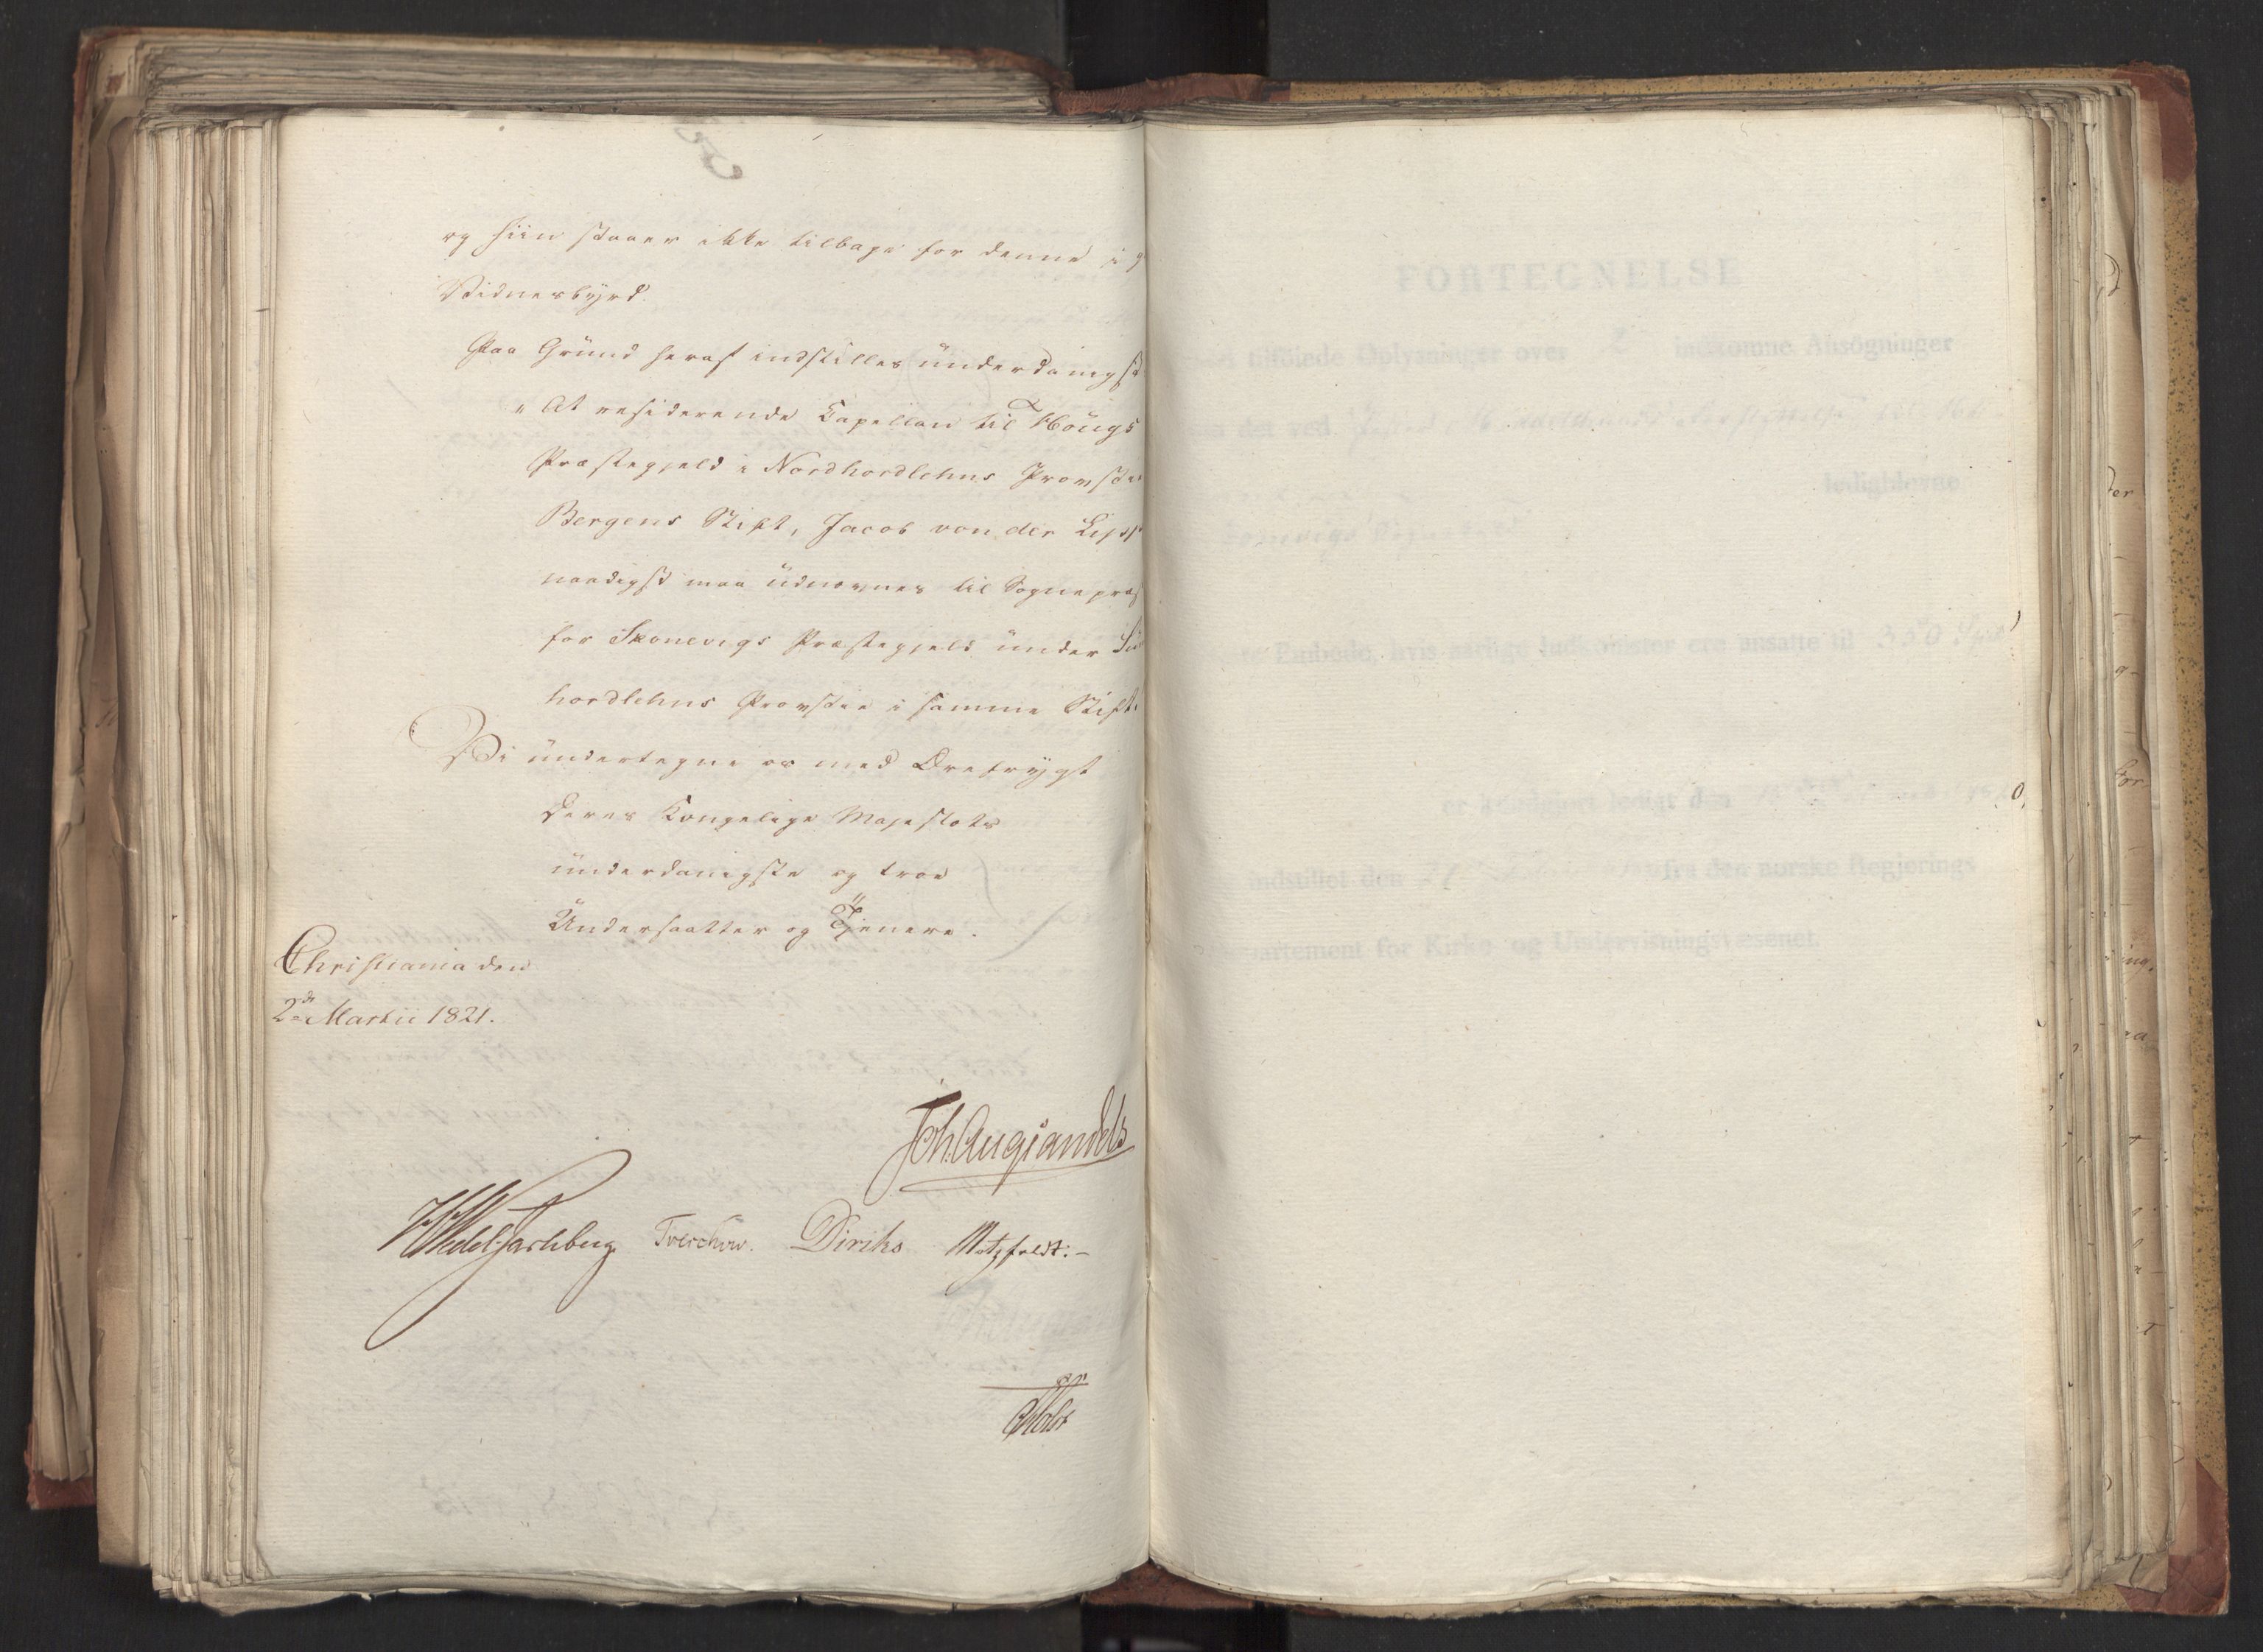 og hiin staaer ikke tilbage for denne i
Vidnesbyrd.
Paa Grund heraf indstilles underdanigst
"At residerende Capellan til Hougs
Præstegjeld i Nordhordlehns Provstie
Bergens Stift, Jacob von der Lipp
naadigst maa udnævnes til Sognepræst
for Skonevigs Præstegjeld under Sün
hordlehns Provstie i samme Stift.
Vi undertegne os med Ærefrygt
Deres Kongelige Majestæts
underdanigste og troe
Undersaatter og Tjenere.
Christiania den
2de Martii 1821.
Joh. Aug. Sandels
HWedel Jarlsberg Treschow. Diriks Motzfeldt.-
Holst
FORTEGNELSE
tilföiede Oplysninger over 2 indkomne Ansögninger
det ved
ledigblevne
Embede, hvis aarlige Indkomster ere ansatte til 350 Spd
er kundgjort ledigt den
indstillet den fra den norske Regjerings
partement for Kirke- og Underviisningsvæsenet.